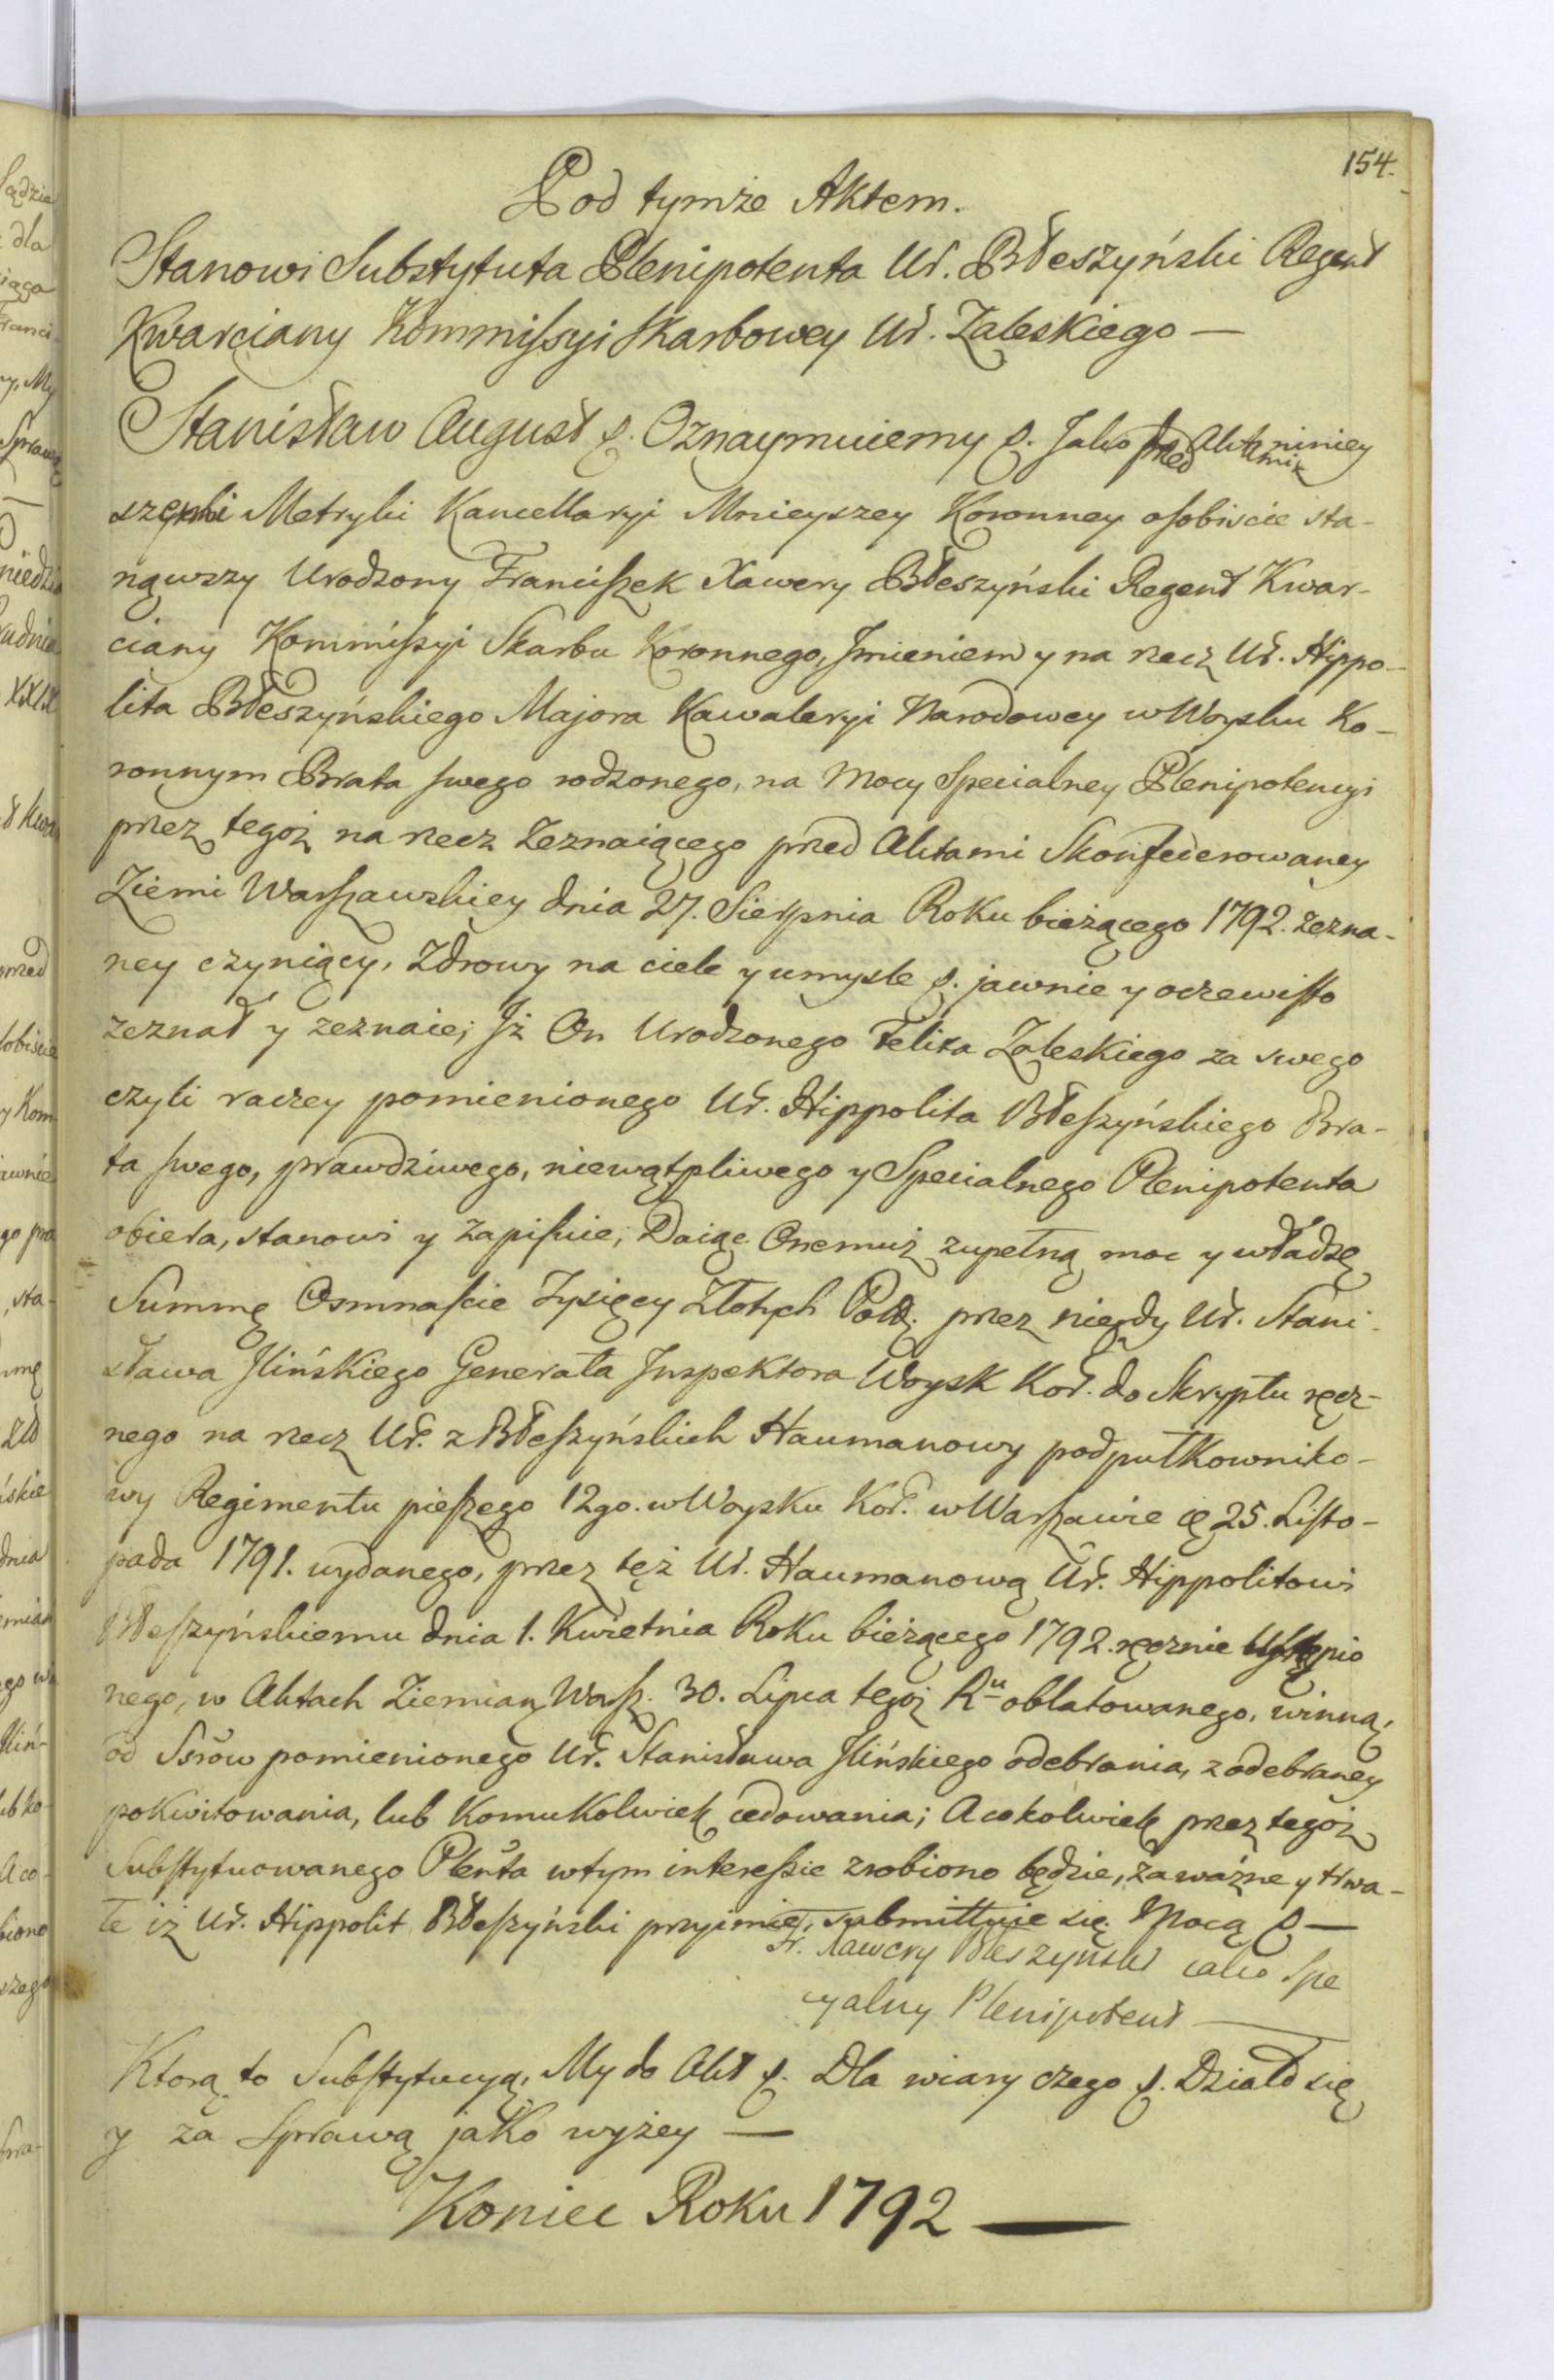 154.
Pod tymże Aktem.
Stanowi Substytuta Plenipotenta Ur. Błeszyński Regent
Kwarciany Kommissyi Skarbowey Ur. Zaleskiego —
Stanisław August p. Oznaymuiemy p. Jako przed Aktami niniey
szemi Metryki Kancellaryi Mnieyszey Koronney osobiscie sta-
nąwszy Urodzony Franciszek Xawery Błeszyński Regent Kwar-
ciany Kommissyi Skarbu Koronnego, Jmieniem y na rzecz Ur. Hippo-
lita Błeszyńskiego Majora Kawaleryi Narodowey w Woysku Ko-
ronnym Brata swego rodzonego, na Mocy Specialney Plenipotencyi
przez tegoż na rzecz Zeznaiącego przed Aktami Skonfederowaney
Ziemi Warszawskiey dnia 27. Sierpnia Roku bieżącego 1792. zezna-
ney czyniący, Zdrowy na ciele y umysle p. jawnie y oczewisto
zeznał y zeznaie; Jż On Urodzonego Felixa Zaleskiego za swego
czyli raczey pomienionego Ur. Hippolita Błeszyńskiego Bra-
ta swego, prawdziwego, niewątpliwego y Specialnego Plenipotenta
obiera, stanowi y zapisuie; Daiąc Onemuż zupełną moc y władzę
Summę Osmnascie Tysięcy Złotych Polł. przez niegdy Ur. Stani-
sława Jlińskiego Generała Jnspektora Woysk Kor. do Skryptu ręcz-
nego na rzecz Ur. z Błeszyńskich Haumanowy podpułkowniko-
wy Regimentu pieszego 12go. w Woysku Kor. w Warszawie d. 25. Listo-
pada 1791. wydanego, przez tęż Ur. Haumanową Ur. Hippolitowi
Błeszyńskiemu dnia 1. Kwietnia Roku bieżącego 1792. ręcznie Ustąpio
nego, w Aktach Ziemian Warsz. 30. Lipca tegoż Ru oblatowanego, winną,
od Ssrów pomienionego Ur. Stanisława Jlińskiego odebrania, z odebraney
pokwitowania, lub Komukolwiek cedowania; A cokolwiek przez tegoż
Substytuowanego Plenta w tym interessie zrobiono będzie, za ważne y trwa-
łe iż Ur. Hippolit Błeszyński przyimie, submittuie się. Mocą p —
Fr. Xawery Błeszyński iako Spe
cyalny Plenipotent —
Ktorą to Substytucyą, My do Akt p. Dla wiary czego p. Działo się
y za Sprawą jako wyżey —
Koniec Roku 1792 —